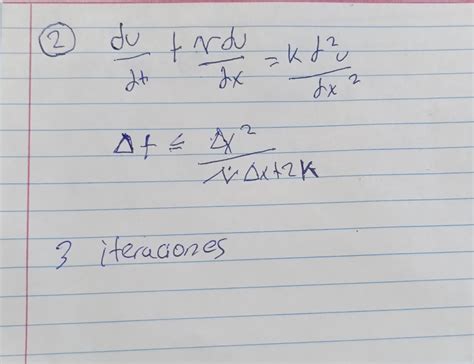 ② du/dt + v du/dx = k d²u/dx²
Δt ≤ Δx²/(v Δx+2k)
3 iteraciones